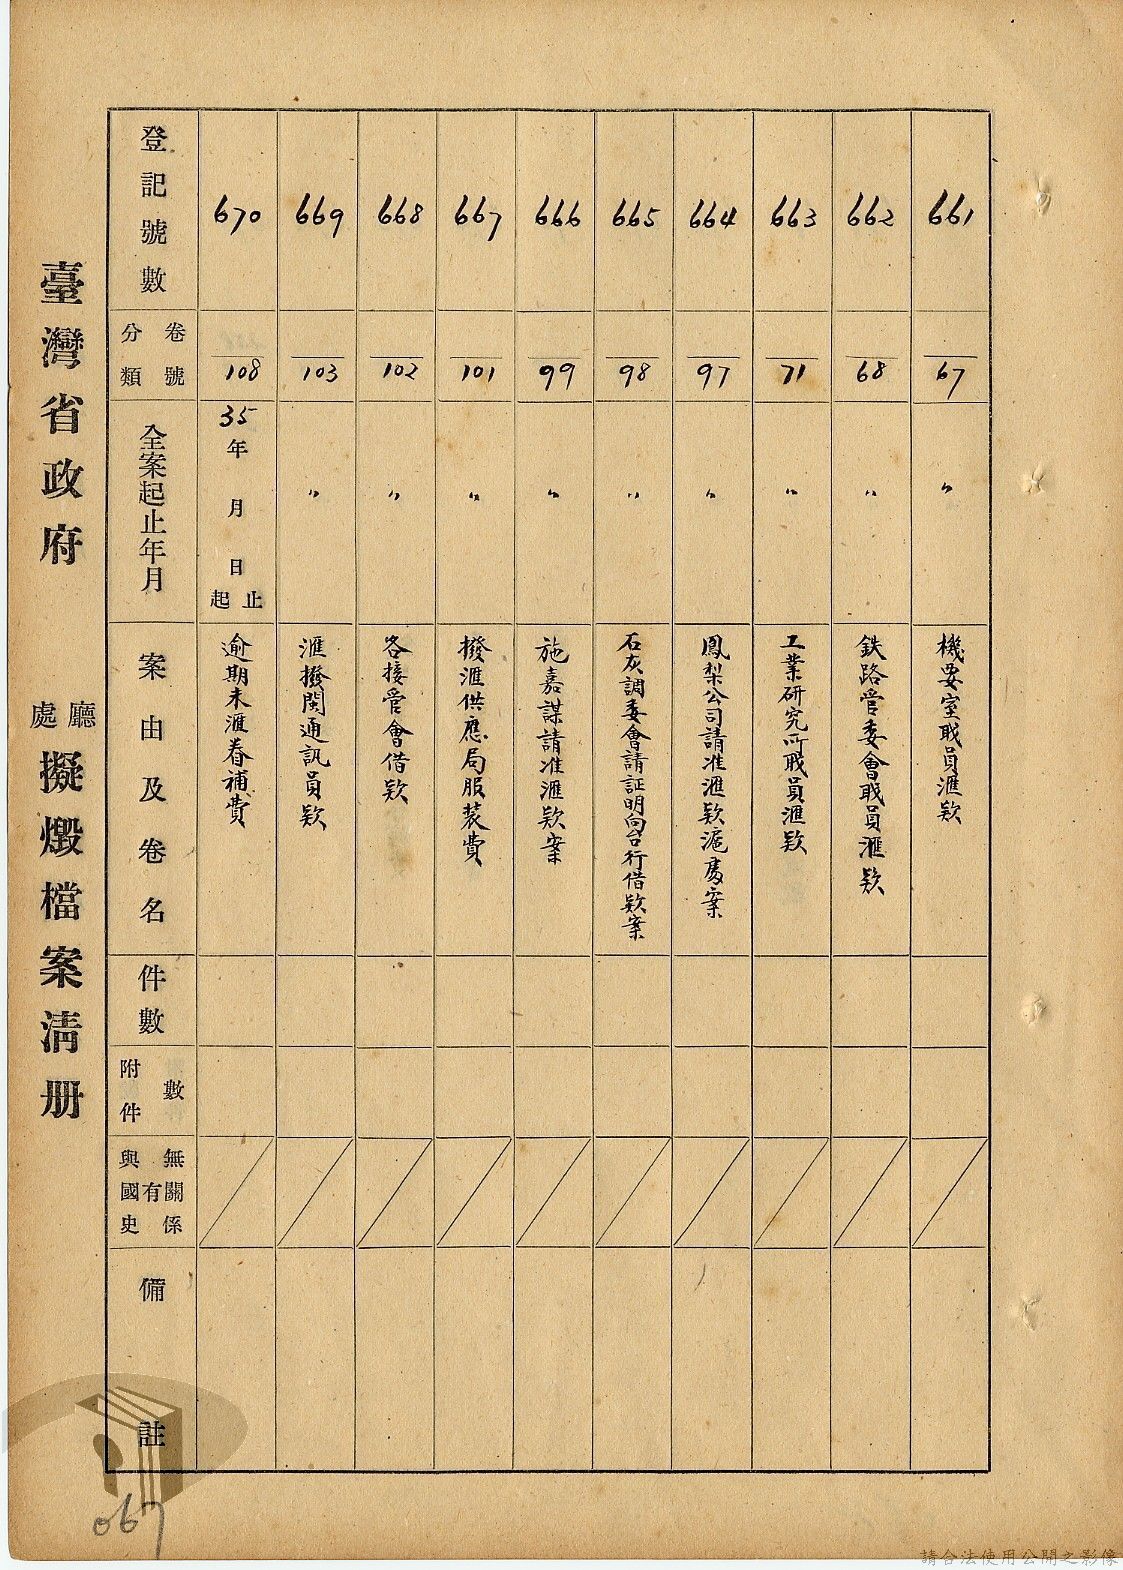 臺灣省政府 廳處 擬燬檔案清册
登記號數
670
669
668
667
666
665
664
663
662
661
分類 卷號
108
103
102
101
99
98
97
71
68
67
全案起止年月
35年 月 日起止
〃
〃
〃
〃
〃
〃
〃
〃
〃
案由及卷名
逾期未滙眷補費
滙撥閩通訊員欵
各接管會借欵
撥滙供應局服装費
施嘉謀請准滙欵案
石灰調委會請証明向台行借欵案
鳳梨公司請准滙欵滬處案
工業研究所職員滙欵
鉄路管委會職員滙欵
機要室職員滙欵
件數
附件數
與國史無有關係
備註
067
請合法使用公開之影像